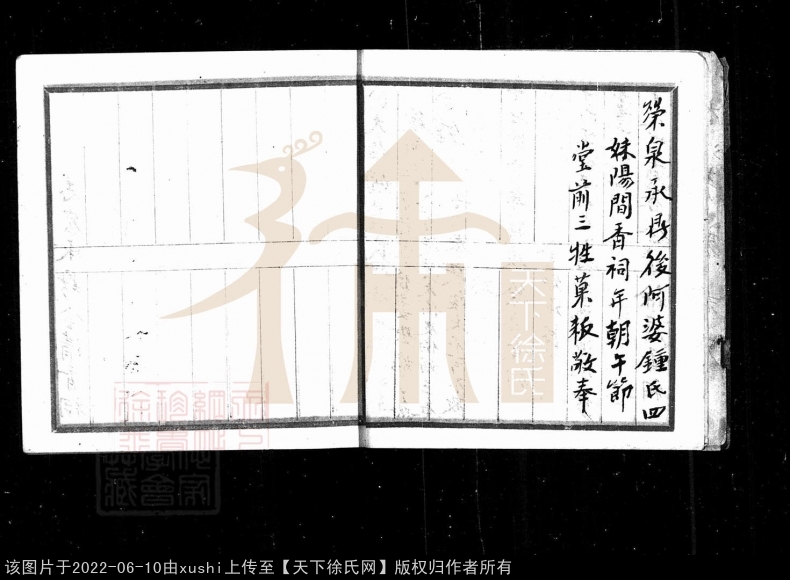 榮泉承舜後阿婆鍾氏四
妹陽間香祠年朝午節
堂前三牲菓粄敬奉
天下徐氏
该图片于2022-06-10由xushi上传至【天下徐氏网】版权归作者所有